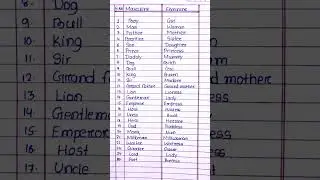 S.No Masculine Feminine
1. Boy Girl
2. Man Woman
3. Father Mother
4. Brother Sister
5. Son Daughter
6. Prince Princess
7. Daddy Mummy
8. Dog Bitch
9. Bull Cow
10. King Queen
11. Sir Madam
12. Grand father Grand mother
13. Lion Lioness
14. Gentleman Lady
15. Emperor Empress
16. Host Hostess
17. Uncle Aunt
Hero Heroine
God Goddess
Milkman Milkwoman
Waiter Waitress
Gander Goose
Lord Lady
Poet Poetess
8. Dog
9. Bull
10. King
11. Sir
12. Grand fa
d mother
13. Lion
ess
14. Gentlem
15. Emperor
ess
16. Host
ess
17. Uncle